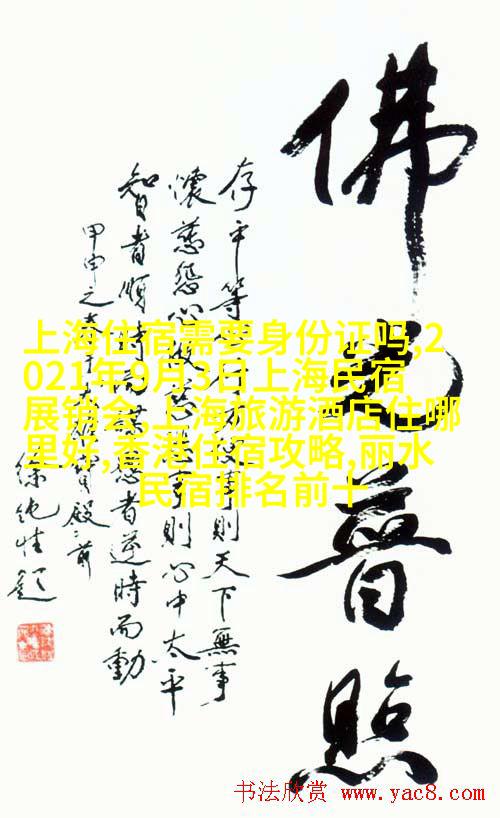 佛光普照
存平等
懷慈悲心
事則天下無事
事則心中太平
智者順時而謀
愚者逆時而動
甲申之春
上海住宿需要身份证吗,2
021年9月3日上海民宿
展销会,上海旅游酒店住哪
里好,香港住宿攻略,丽水
民宿排名前十
书法欣赏 www.yac8.com